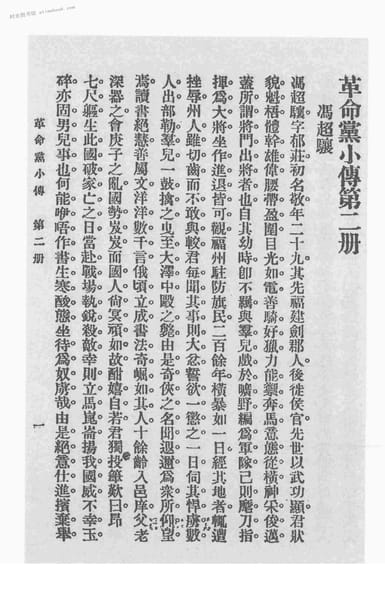 革命黨小傳第二册
馮超驤
馮超驤字郁莊初名敬年二十九其先福建劍郡人後徙侯官先世以武功顯君狀
貌魁梧體幹雄偉腰帶盈圍目光如電善騎好獵力能禦奔馬意態從橫神采俊邁
蓋所謂將門出將者也自其幼時卽不羈與羣兒戲於曠野編爲軍隊己則麾刀指
揮爲大將坐作進退皆可觀福州駐防旗民二百餘年橫暴如一日經其地者輒遭
挫辱州人雖切齒而不敢與較君每聞其事則大忿誓欲一懲之一日伺其悍虜數
人出部勒羣兒一鼓擒之曳至大澤中毆之斃由是奇俠之名聞遐邇爲衆所仰望
焉讀書絕慧善屬文洋洋數千言俄頃立成書法奇崛如其人十餘齡入邑庠父老
深器之會庚子之亂國勢岌岌而國人尙冥頑如故酣嬉自若君獨投筆歎曰昂
七尺軀生此國破家亡之日當赴戰場執銳殺敵幸則立馬崑崙揚我國威不幸玉
碎亦固男兒事也何能咿唔作書生寒酸態坐待爲奴虜哉由是絕意仕進擯棄舉
革命黨小傳 第二册 1